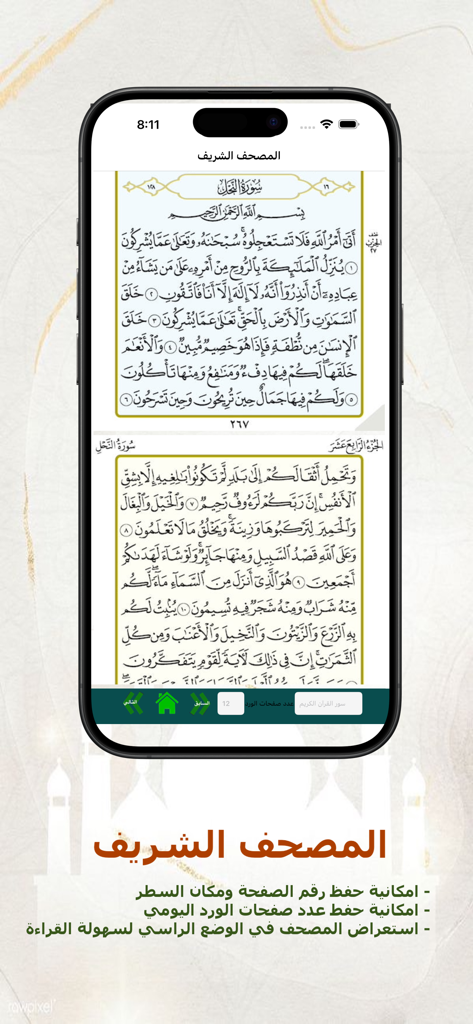 8:11
المصحف الشريف
١٦ سُورَةُ النَّحْلِ ١٢٨
بِسْمِ اللَّهِ الرَّحْمَٰنِ الرَّحِيمِ
أَتَىٰ أَمْرُ اللَّهِ فَلَا تَسْتَعْجِلُوهُ سُبْحَانَهُ وَتَعَالَىٰ عَمَّا يُشْرِكُونَ
١ يُنَزِّلُ الْمَلَائِكَةَ بِالرُّوحِ مِنْ أَمْرِهِ عَلَىٰ مَن يَشَاءُ مِنْ
عِبَادِهِ أَنْ أَنذِرُوا أَنَّهُ لَا إِلَٰهَ إِلَّا أَنَا فَاتَّقُونِ ٢ خَلَقَ
السَّمَاوَاتِ وَالْأَرْضَ بِالْحَقِّ تَعَالَىٰ عَمَّا يُشْرِكُونَ ٣ خَلَقَ
الْإِنسَانَ مِن نُّطْفَةٍ فَإِذَا هُوَ خَصِيمٌ مُّبِينٌ ٤ وَالْأَنْعَامَ
خَلَقَهَا لَكُمْ فِيهَا دِفْءٌ وَمَنَافِعُ وَمِنْهَا تَأْكُلُونَ
٥ وَلَكُمْ فِيهَا جَمَالٌ حِينَ تُرِيحُونَ وَحِينَ تَسْرَحُونَ ٦
٢٦٧
الجُزْءُ الرَّابِعَ عَشَرَ سُورَةُ النَّحْلِ
وَتَحْمِلُ أَثْقَالَكُمْ إِلَىٰ بَلَدٍ لَّمْ تَكُونُوا بَالِغِيهِ إِلَّا بِشِقِّ
الْأَنفُسِ إِنَّ رَبَّكُمْ لَرَءُوفٌ رَّحِيمٌ ٧ وَالْخَيْلَ وَالْبِغَالَ
وَالْحَمِيرَ لِتَرْكَبُوهَا وَزِينَةً وَيَخْلُقُ مَا لَا تَعْلَمُونَ ٨
وَعَلَى اللَّهِ قَصْدُ السَّبِيلِ وَمِنْهَا جَائِرٌ وَلَوْ شَاءَ لَهَدَاكُمْ
أَجْمَعِينَ ٩ هُوَ الَّذِي أَنزَلَ مِنَ السَّمَاءِ مَاءً لَّكُم
مِّنْهُ شَرَابٌ وَمِنْهُ شَجَرٌ فِيهِ تُسِيمُونَ ١٠ يُنبِتُ لَكُم
بِهِ الزَّرْعَ وَالزَّيْتُونَ وَالنَّخِيلَ وَالْأَعْنَابَ وَمِن كُلِّ
الثَّمَرَاتِ إِنَّ فِي ذَٰلِكَ لَآيَةً لِّقَوْمٍ يَتَفَكَّرُونَ
سور القرآن الكريم عدد صفحات الورد 12 السابق التالي
المصحف الشريف
- امكانية حفظ رقم الصفحة ومكان السطر
- امكانية حفظ عدد صفحات الورد اليومي
- استعراض المصحف في الوضع الراسي لسهولة القراءة
rawpixel